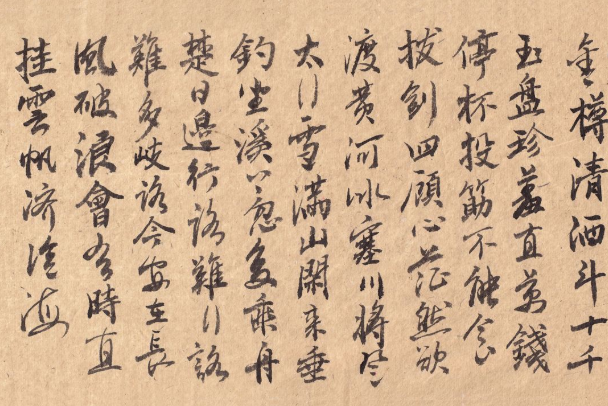 金樽清酒斗十千
玉盘珍羞直萬錢
停杯投筯不能食
拔劍四顧心茫然欲
渡黄河冰塞川將登
太行雪滿山閑来垂
釣坐溪上忽復乘舟
梦日邊行路難行路
難多歧路今安在長
風破浪會有時直
挂雲帆济滄海